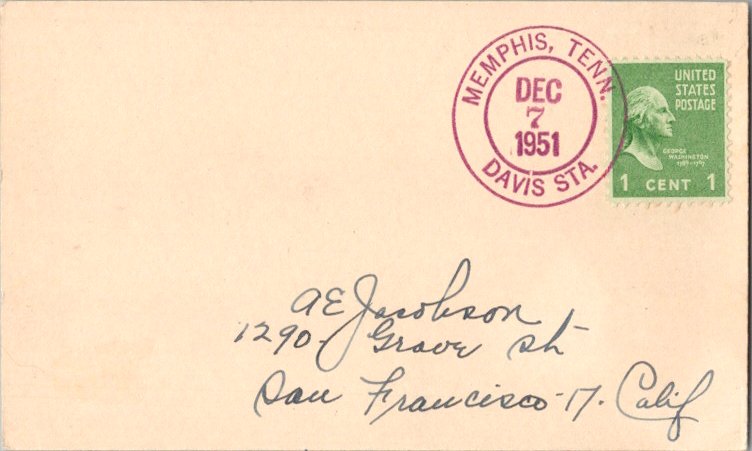 MEMPHIS, TENN.
DEC
7
1951
DAVIS STA.
UNITED
STATES
POSTAGE
GEORGE
WASHINGTON
1789-1797
1 CENT 1
AE Jacobson
1290 - Grove St
San Francisco - 17. Calif